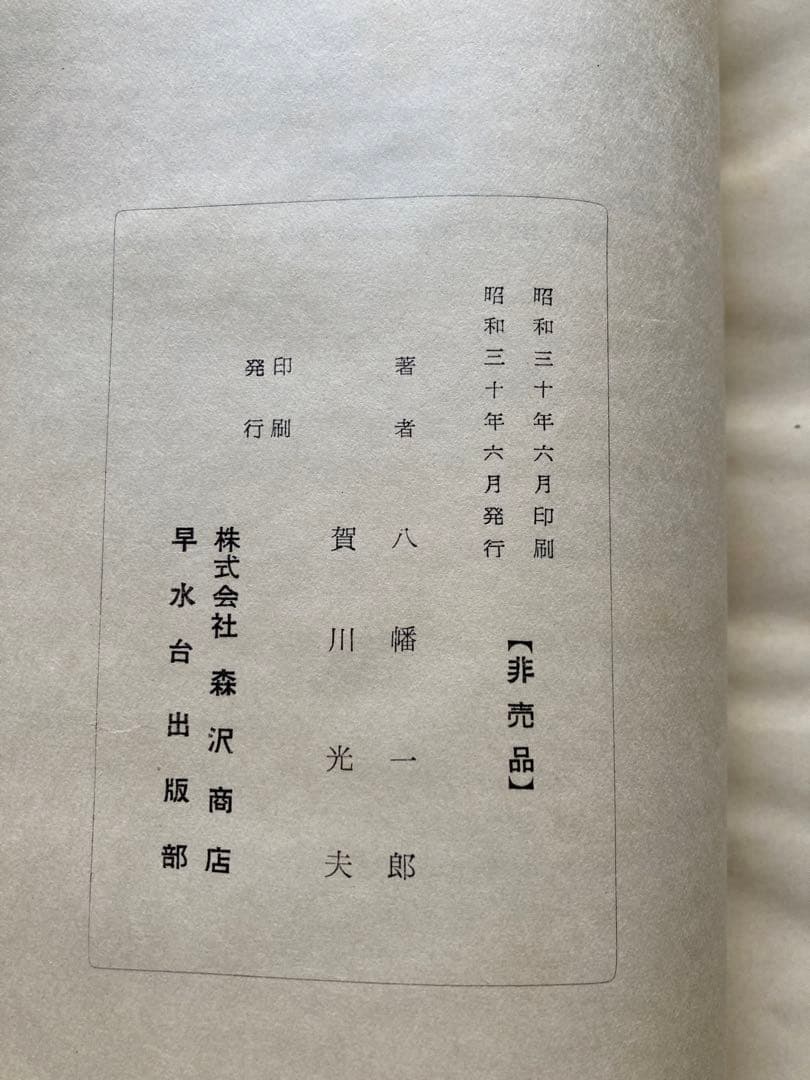 昭和三十年六月印刷
昭和三十年六月発行
【非売品】
著者 八幡一郎
賀川光夫
印刷 株式会社 森沢商店
発行 早水台出版部